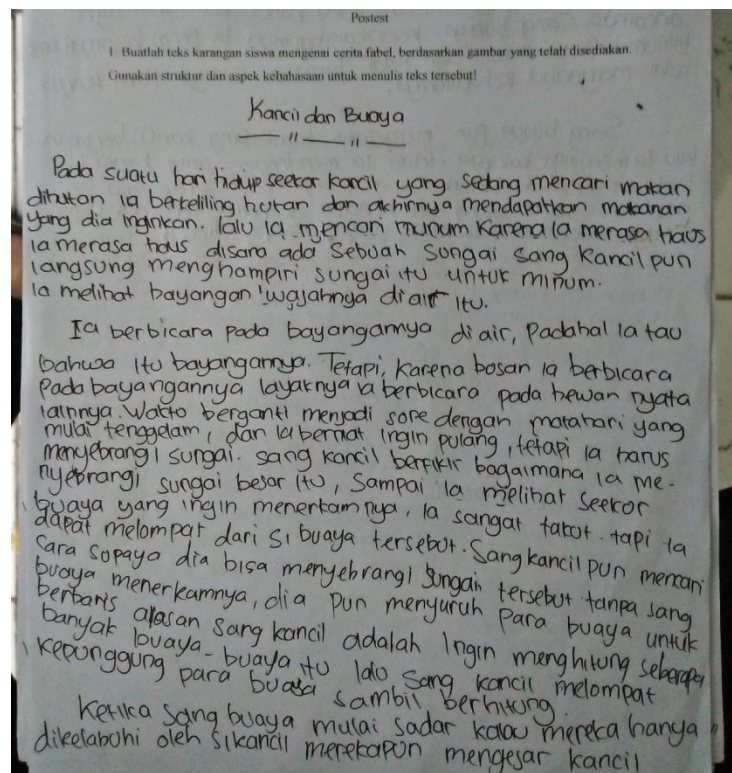 Postest
1. Buatlah teks karangan siswa mengenai cerita fabel, berdasarkan gambar yang telah disediakan.
Gunakan struktur dan aspek kebahasaan untuk menulis teks tersebut!
Kancil dan Buaya
Pada suatu hari hidup seekor kancil yang sedang mencari makan
dihutan ia berkeliling hutan dan akhirnya mendapatkan makanan
yang dia inginkan. lalu ia mencari minum karena ia merasa haus
ia merasa haus disana ada sebuah sungai sang kancil pun
langsung menghampiri sungai itu untuk minum.
Ia melihat bayangan wajahnya diair itu.
Ia berbicara pada bayangannya di air, padahal ia tau
bahwa itu bayangannya. Tetapi, karena bosan ia berbicara
pada bayangannya layaknya ia berbicara pada hewan nyata
lainnya. Waktu berganti menjadi sore dengan matahari yang
mulai tenggelam, dan ia berniat ingin pulang, tetapi ia harus
menyebrangi sungai. sang kancil berfikir bagaimana ia me-
nyebrangi sungai besar itu, sampai ia melihat seekor
buaya yang ingin menerkamnya, ia sangat takut. tapi ia
dapat melompat dari si buaya tersebut. Sang kancil pun mencari
cara sopaya dia bisa menyebrangi sungai tersebut tanpa sang
buaya menerkamnya, dia pun menyuruh para buaya untuk
berbaris alasan sang kancil adalah ingin menghitung seberapa
banyak buaya-buaya itu lalu sang kancil melompat
kepunggung para buaya sambil berhitung.
Ketika sang buaya mulai sadar kalau mereka hanya
dikelabuhi oleh sikancil merekapun mengejar kancil